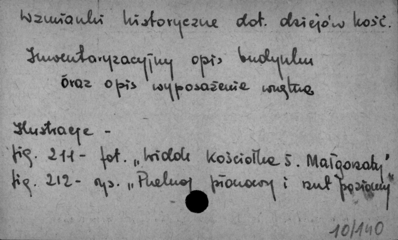 Wzmianki historyczne dot. dziejów kość.
Inwentaryzacyjny opis budynku
oraz opis wyposażenia wnętrza
Ilustracje -
fig. 211 - fot. „Widok Kościółka S. Małgorzaty"
fig. 212 - rys. „Przekrój pionowy i rzut poziomy"
10/140